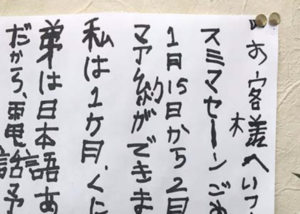 お客様へいつ
スミマセーンご
1月15日から2月
マア約ができま
私は1ケ月、くに
弟は日本語あ
だから、電話予